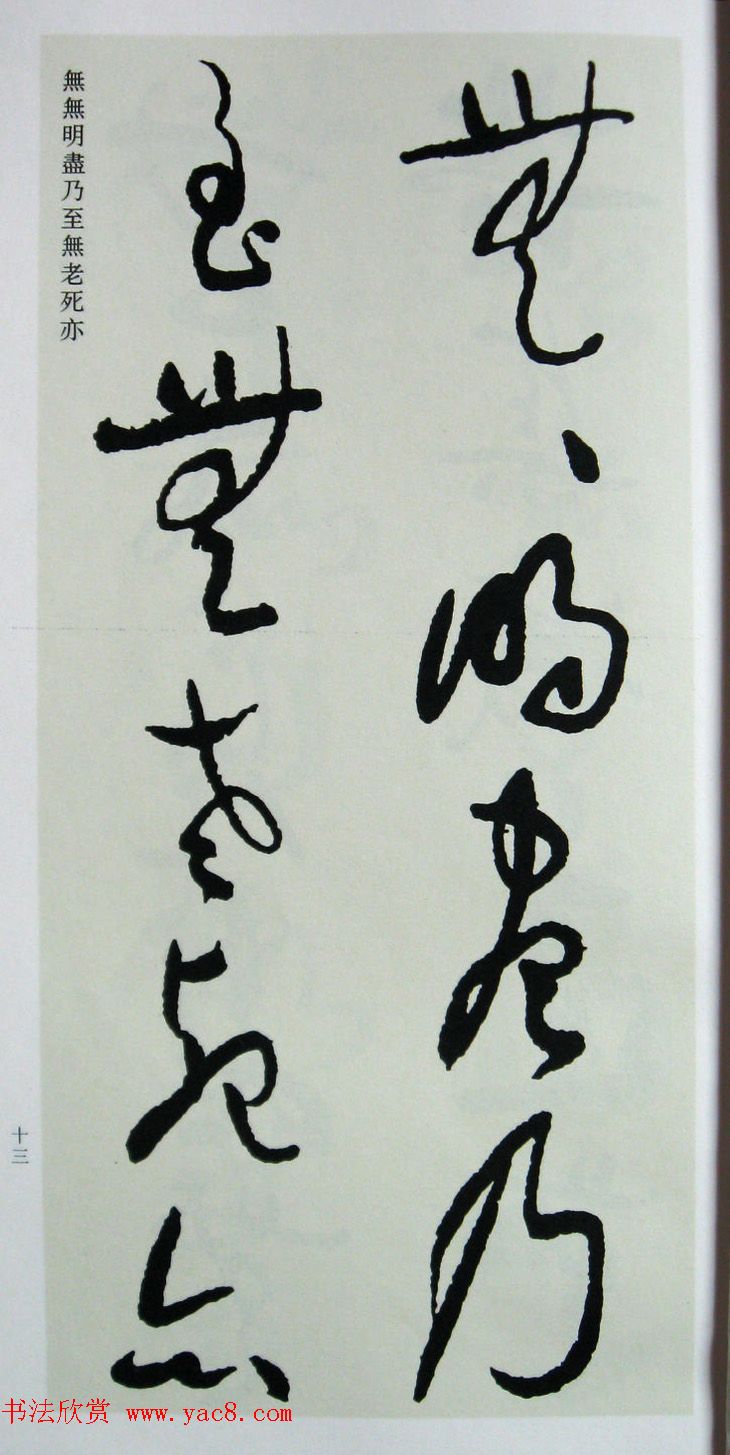 無、明盡乃
至無老死亦
無無明盡乃至無老死亦
十三
书法欣赏 www.yac8.com